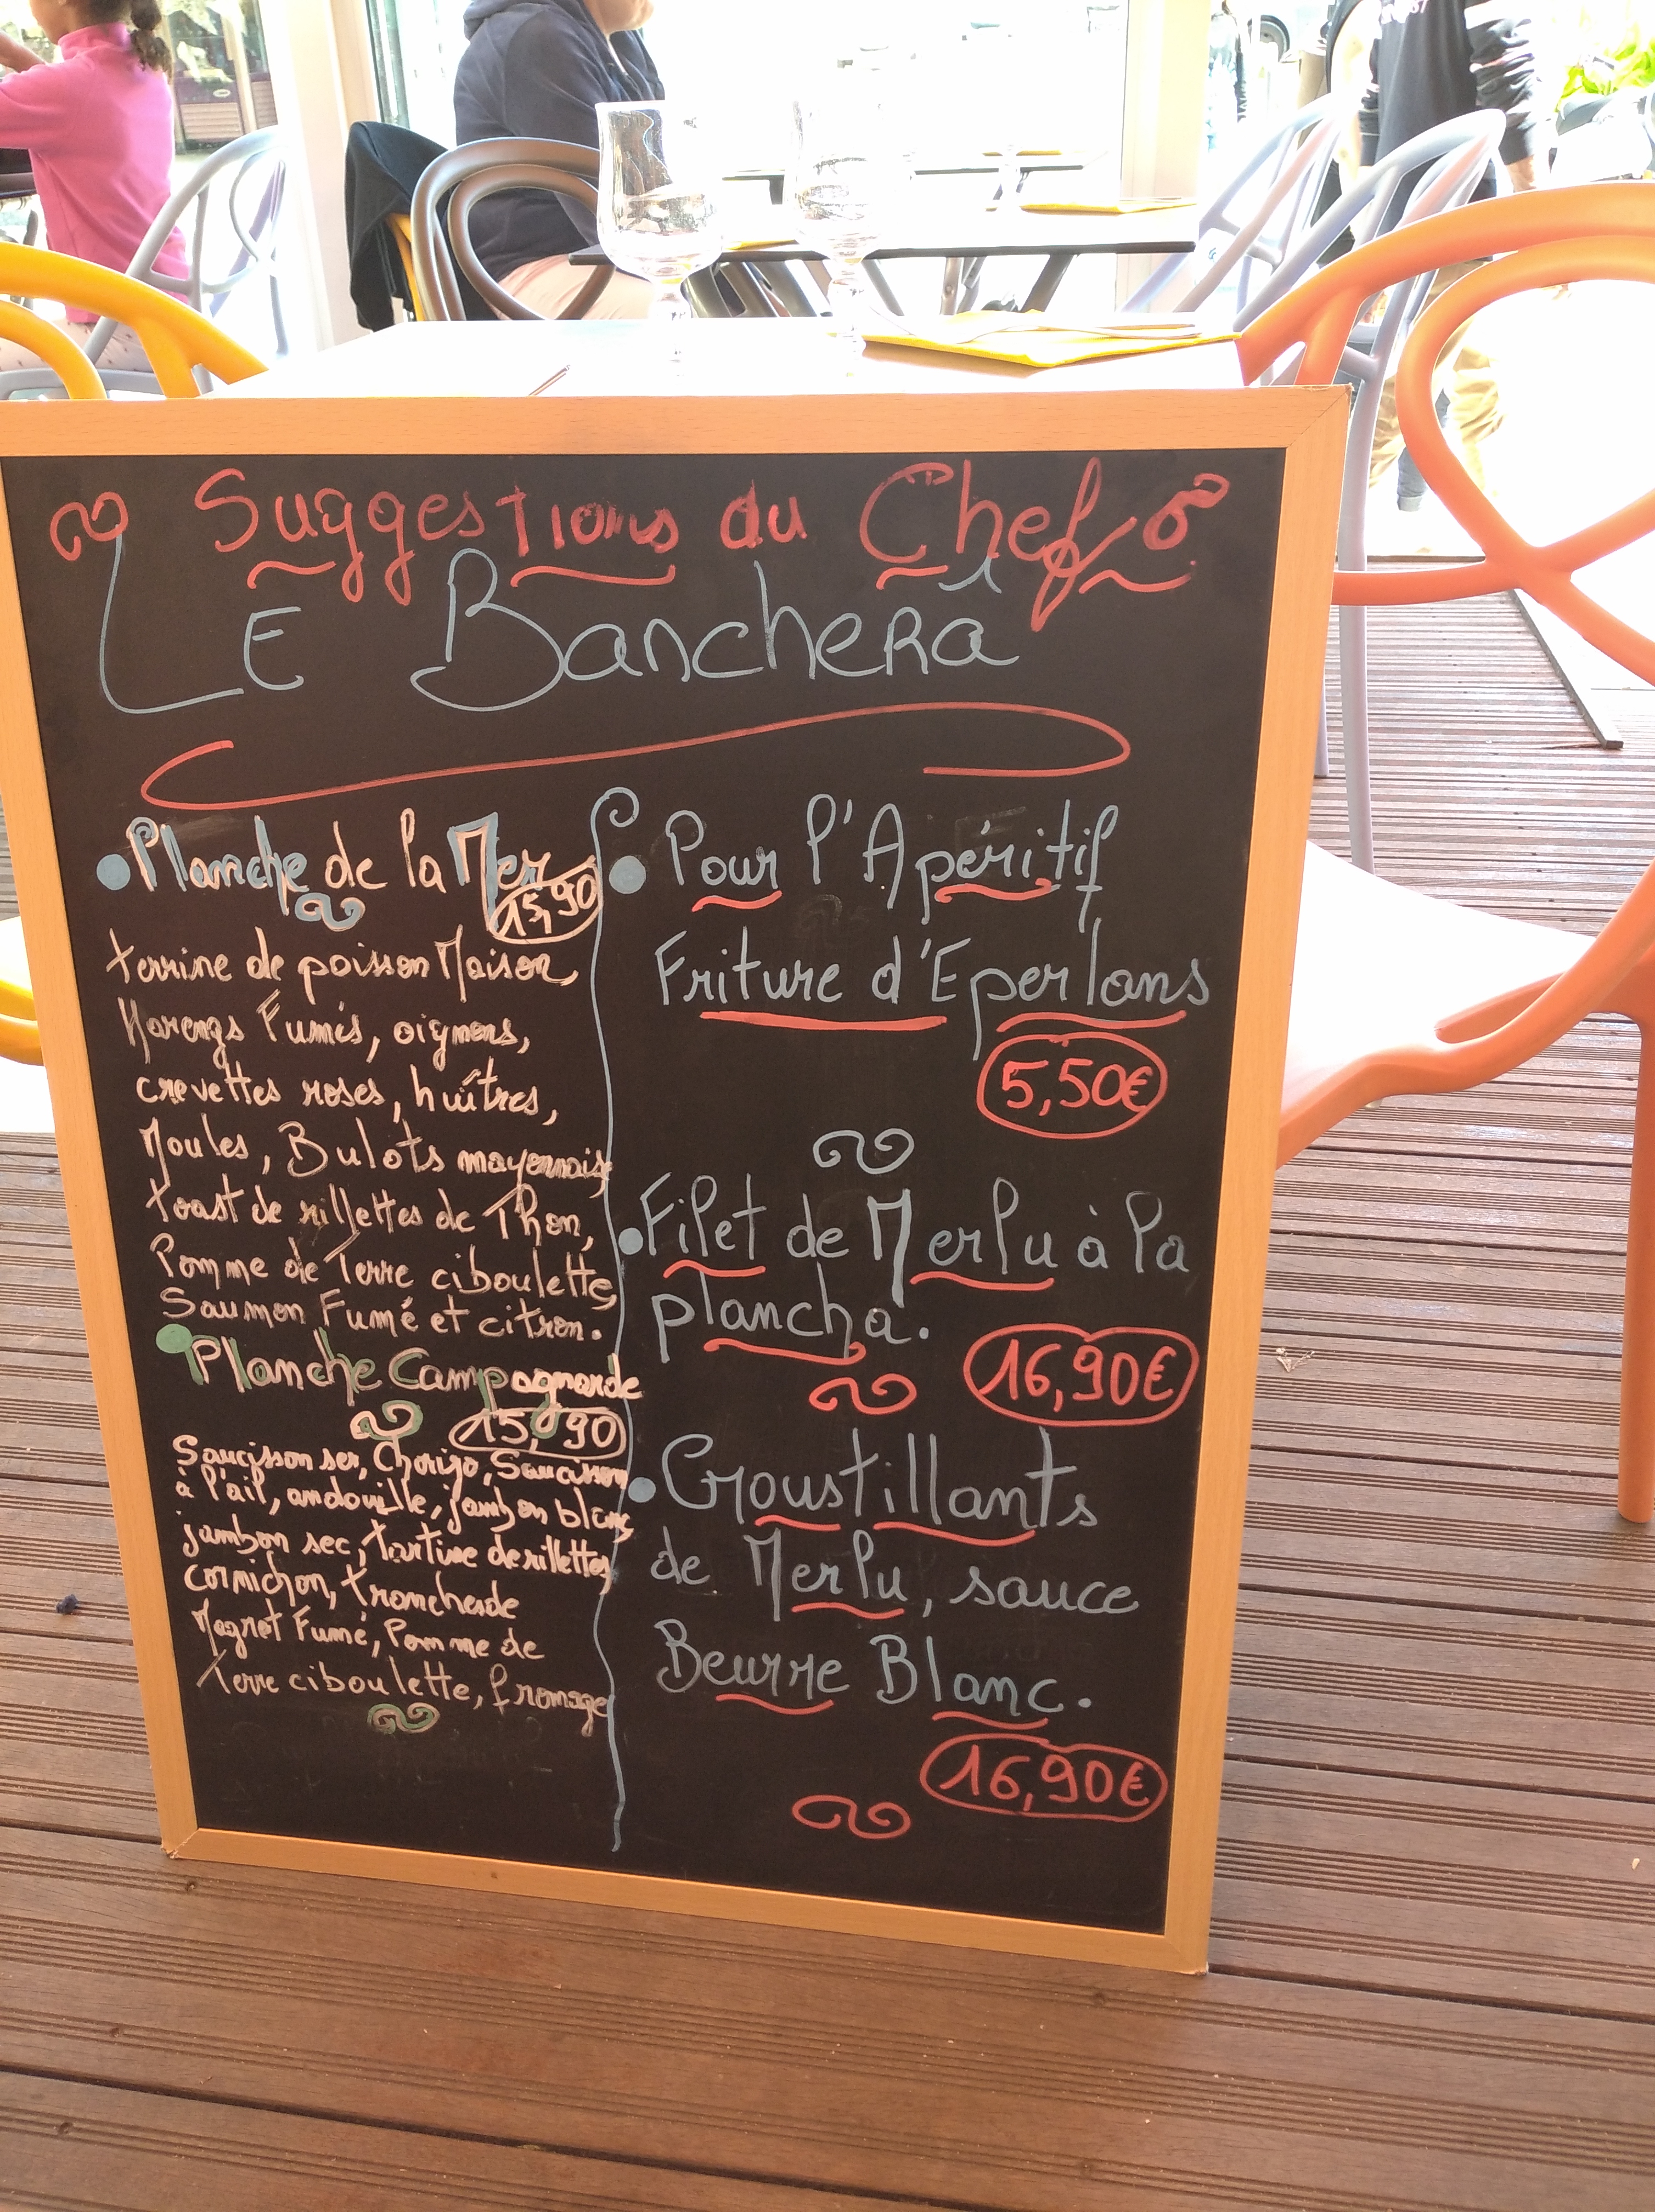 Suggestions du Chef
LE Bancherà
Planche de la Mer
15,90
terrine de poisson Maison,
Harengs Fumés, oignons,
crevettes roses, huîtres,
Moules, Bulots mayonnaise
toast de rillettes de Thon,
Pomme de Terre ciboulette,
Saumon Fumé et citron.
Planche Campagnarde
15,90
Saucisson sec, Chorizo, Saucisson
à l'ail, andouille, jambon blanc,
jambon sec, tartine de rillettes,
cornichon, tranche de
Magret Fumé, Pomme de
Terre ciboulette, fromage
Pour l'Apéritif
Friture d'Eperlans
5,50€
Filet de Merlu à la
plancha.
16,90€
Croustillants
de Merlu, sauce
Beurre Blanc.
16,90€